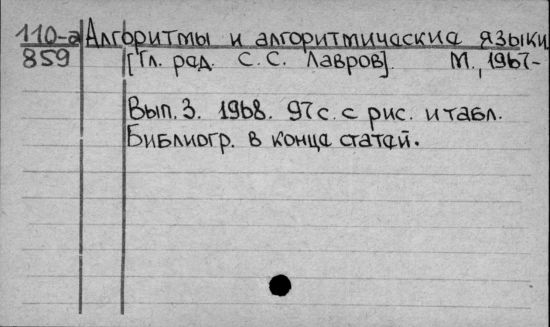 110-а Алгоритмы и алгоритмические языки
859 [Гл. ред. С. С. Лавров]. М., 1967-
Вып. 3. 1968. 97 с. с рис. и табл.
Библиогр. в конце статей.